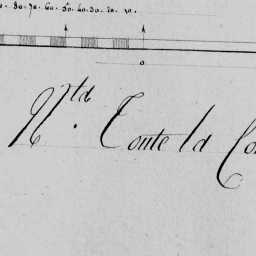 80. 70. 60. 50. 40. 30. 20. 10.
0
Nta. Toute la Co